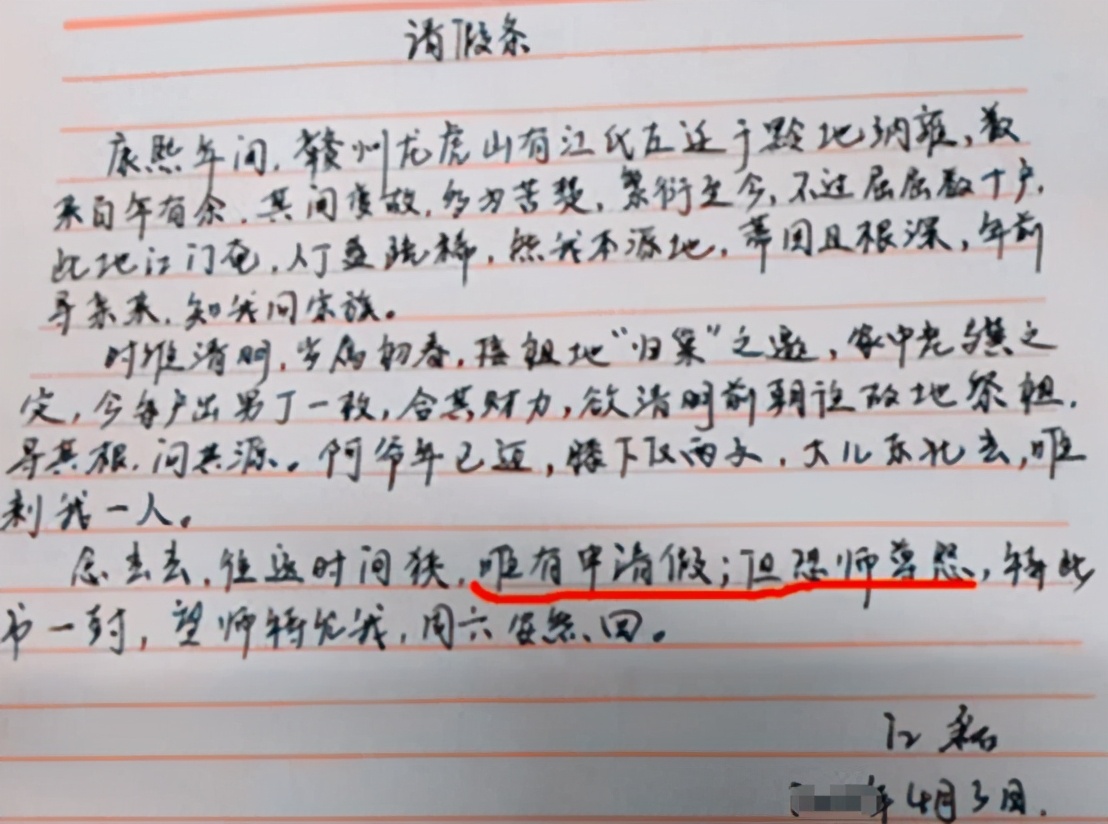 请假条
康熙年间，赣州龙虎山有江氏左迁于黔地纳雍，数
来百年有余，其间变故，多为苦楚，繁衍至今，不过屈屈数十户，
此地江门奄，人丁益疏稀，然我本源地，蒂固且根深，年前
寻亲来，知我问宗族。
时维清明，岁属初春，接祖地“归巢”之邀，家中老之
定，今每户出男丁一枚，合其财力，欲清明前朝往故地祭祖，
寻其根，问其源。阿爷年已迈，膝下仅两子，大儿东北去，唯
剩我一人。
念去去，往返时间狭，唯有申请假；但恐师尊怒，特此
书一封，望师特允我，周六安然回。
江磊
年4月3日.